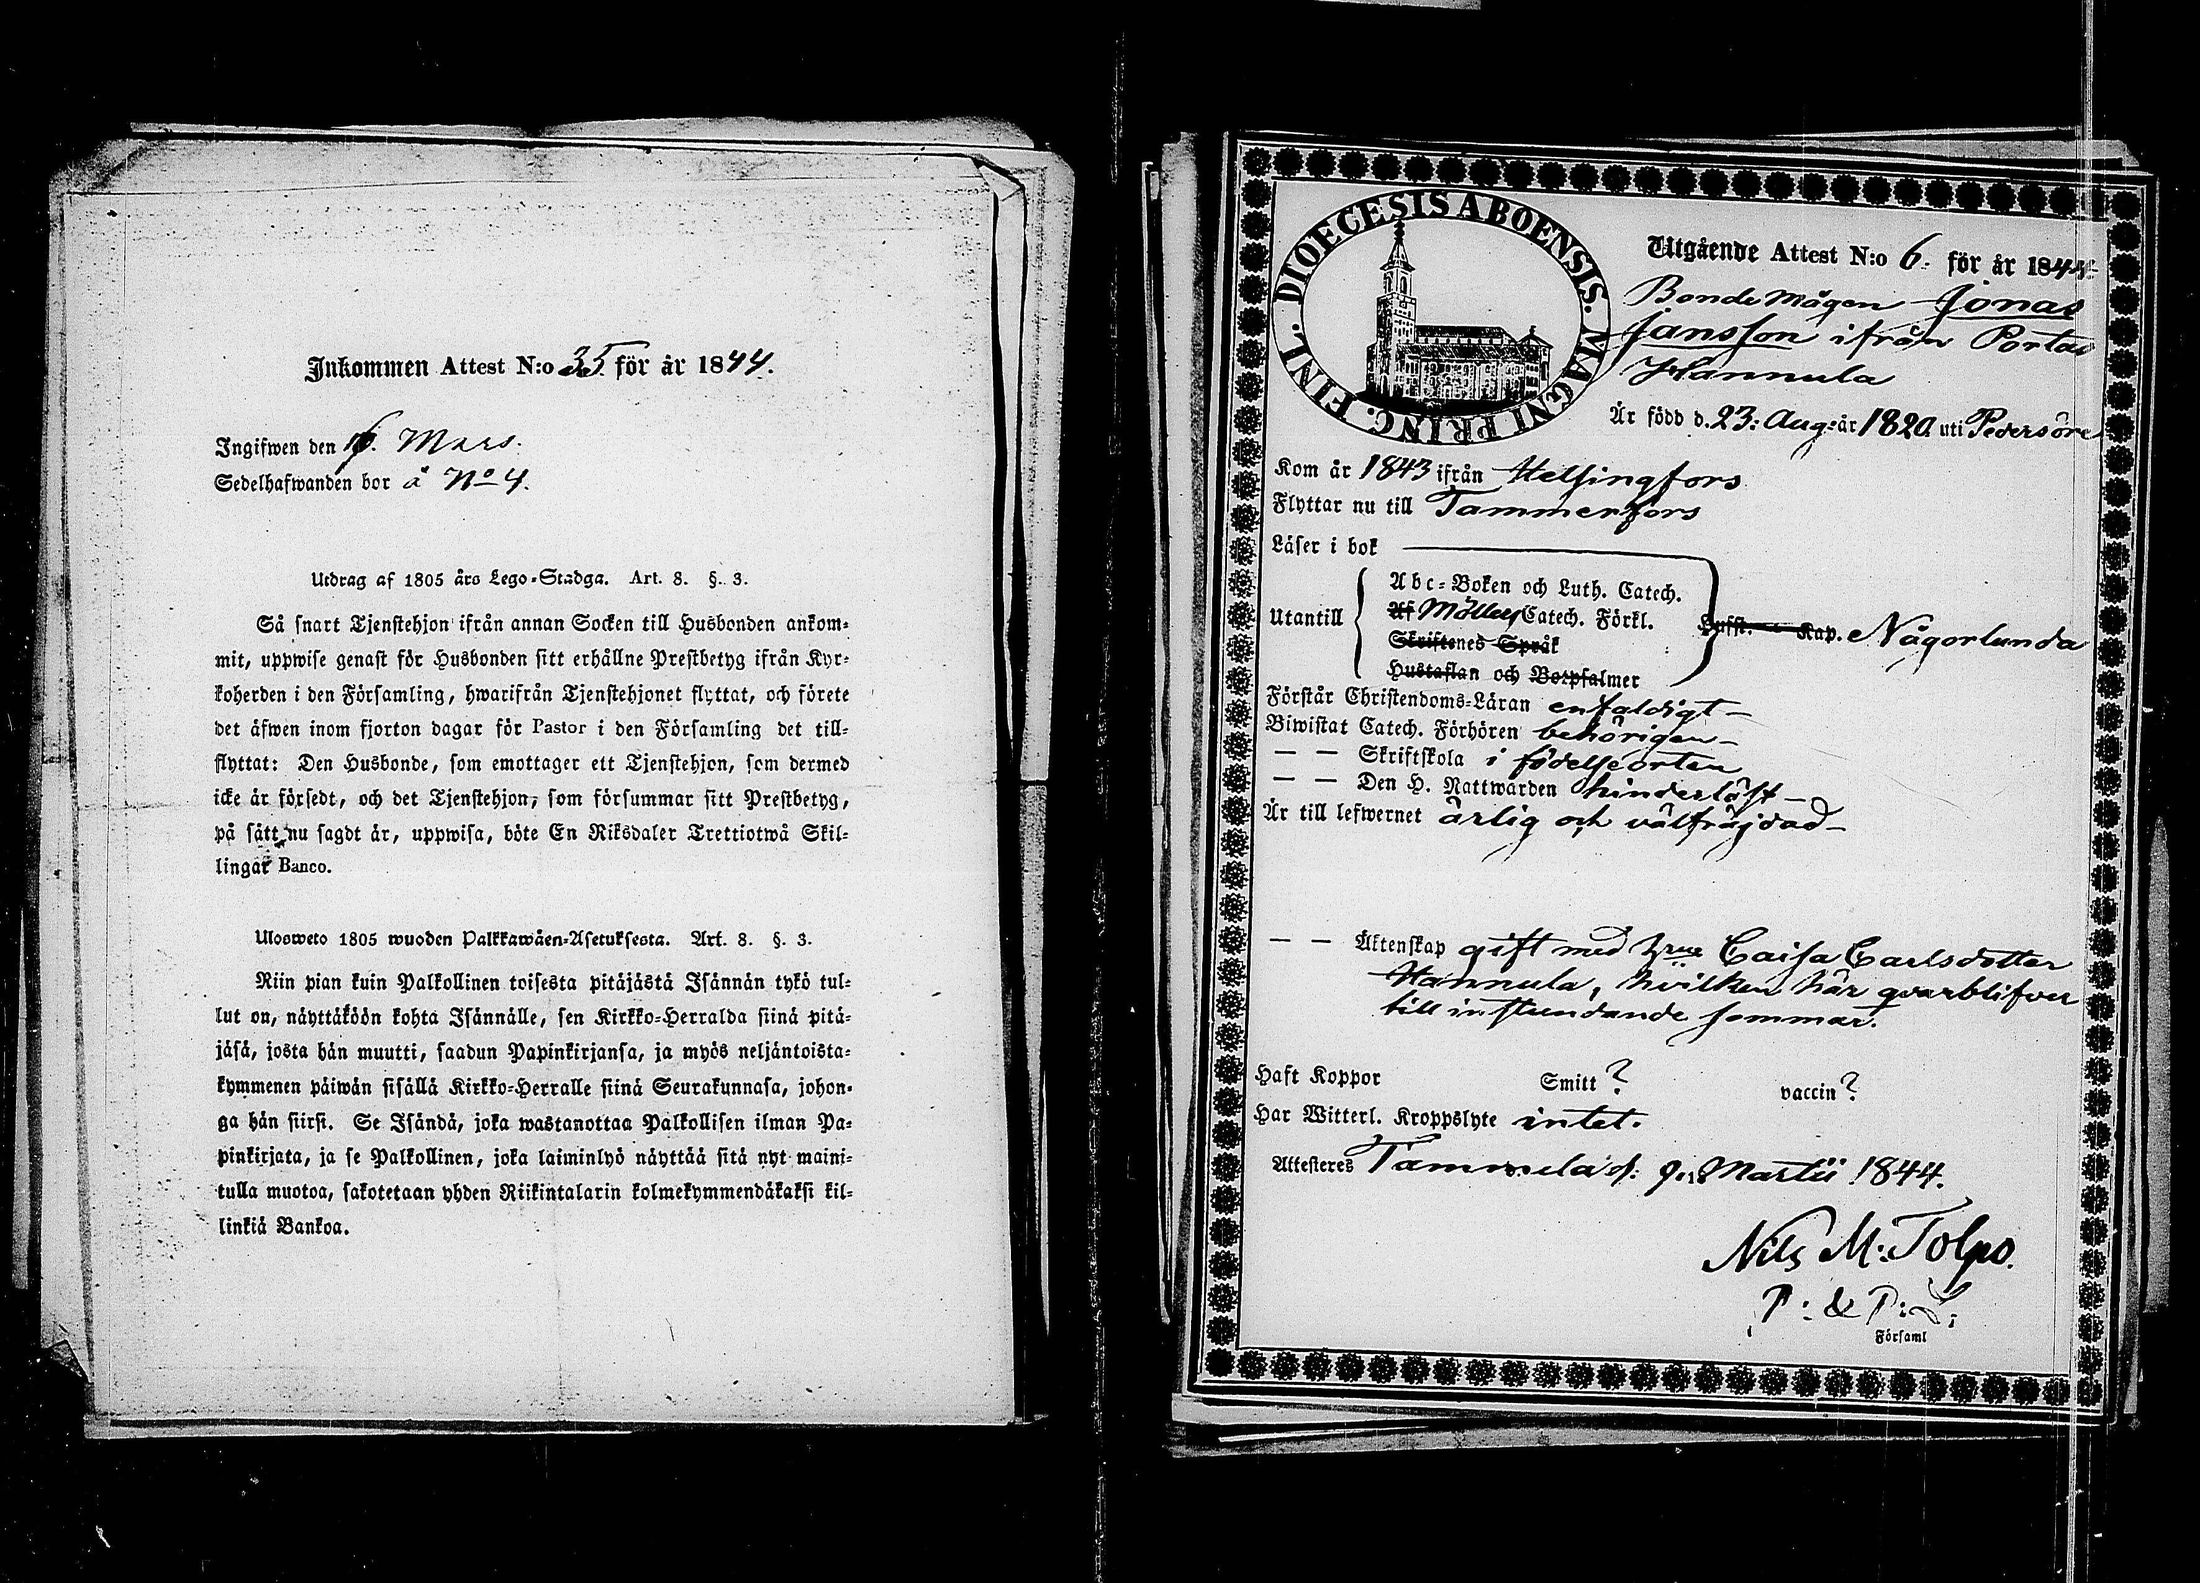 Inkommen Attest N:o 35. för år 1844.
Ingifwen den 16. Mars.
Sedelhafwanden bor å No 4.
Utdrag af 1805 års Lego-Stadga. Art. 8. §. 3.
Så snart Tjenstehjon ifrån annan Socken till Husbonden ankom-
mit, uppwise genast för Husbonden sitt erhållne Prestbetyg ifrån Kyr-
koherden i den Församling, hwarifrån Tjenstehjonet flyttat, och förete
det äfwen inom fjorton dagar för Pastor i den Församling det till-
flyttat: Den Husbonde, som emottager ett Tjenstehjon, som dermed
icke är försedt, och det Tjenstehjon, som försummar sitt Prestbetyg,
på sätt nu sagdt är, uppwisa, böte En Riksdaler Trettiotwå Skil-
lingar Banco.
Ulosweto 1805 wuoden Palkkawäen-Asetuksesta. Art. 8. §. 3.
Niin pian kuin Palkollinen toisesta pitäjästä Isännän tykö tul-
lut on, näyttäköön kohta Isännälle, sen Kirkko-Herralda siinä pitä-
jäsä, josta hän muutti, saadun Papinkirjansa, ja myös neljäntoista-
kymmenen päiwän sisällä Kirkko-Herralle siinä Seurakunnasa, johon-
ga hän siirsi. Se Isändä, joka wastanottaa Palkollisen ilman Pa-
pinkirjata, ja se Palkollinen, joka laiminlyö näyttää sitä nyt maini-
tulla muotoa, sakotetaan yhden Riikintalarin kolmekymmendäkaksi kil-
linkiä Bankoa.
DIOECESIS ABOENSIS. MAGNI PRINC. FINL.
Utgående Attest N:o 6. för år 1844
Bonde mågen Jonas
Jansson ifrån Portas
Hannula
Är född d. 23: Aug: år 1820 uti Pedersöre
Kom år 1843 ifrån Helsingfors
Flyttar nu till Tammerfors
Läser i bok
Utantill
Abc-Boken och Luth. Catech.
Af Möllers Catech. Förkl.
Skriftenes Språk
Hustaflan och Botpsalmer
Kap. Någorlunda
Förstår Christendoms-Läran enfaldigt
Biwistat Catech. Förhören behörigen
— — Skriftskola i födelseorten
— — Den H. Nattwarden hinderlöst
Är till lefwernet ärlig och välfräjdad
— — Äktenskap gift med Caisa Carlsdotter
Hannula, hvilken här qvarblifver
till instundande sommar.
Haft Koppor Smitt ? vaccin ?
Har Witterl. Kroppslyte intet.
Attesteres Tammela d. 9. Martii 1844.
Nils M: Tolpo.
P: & P: L:
Församl